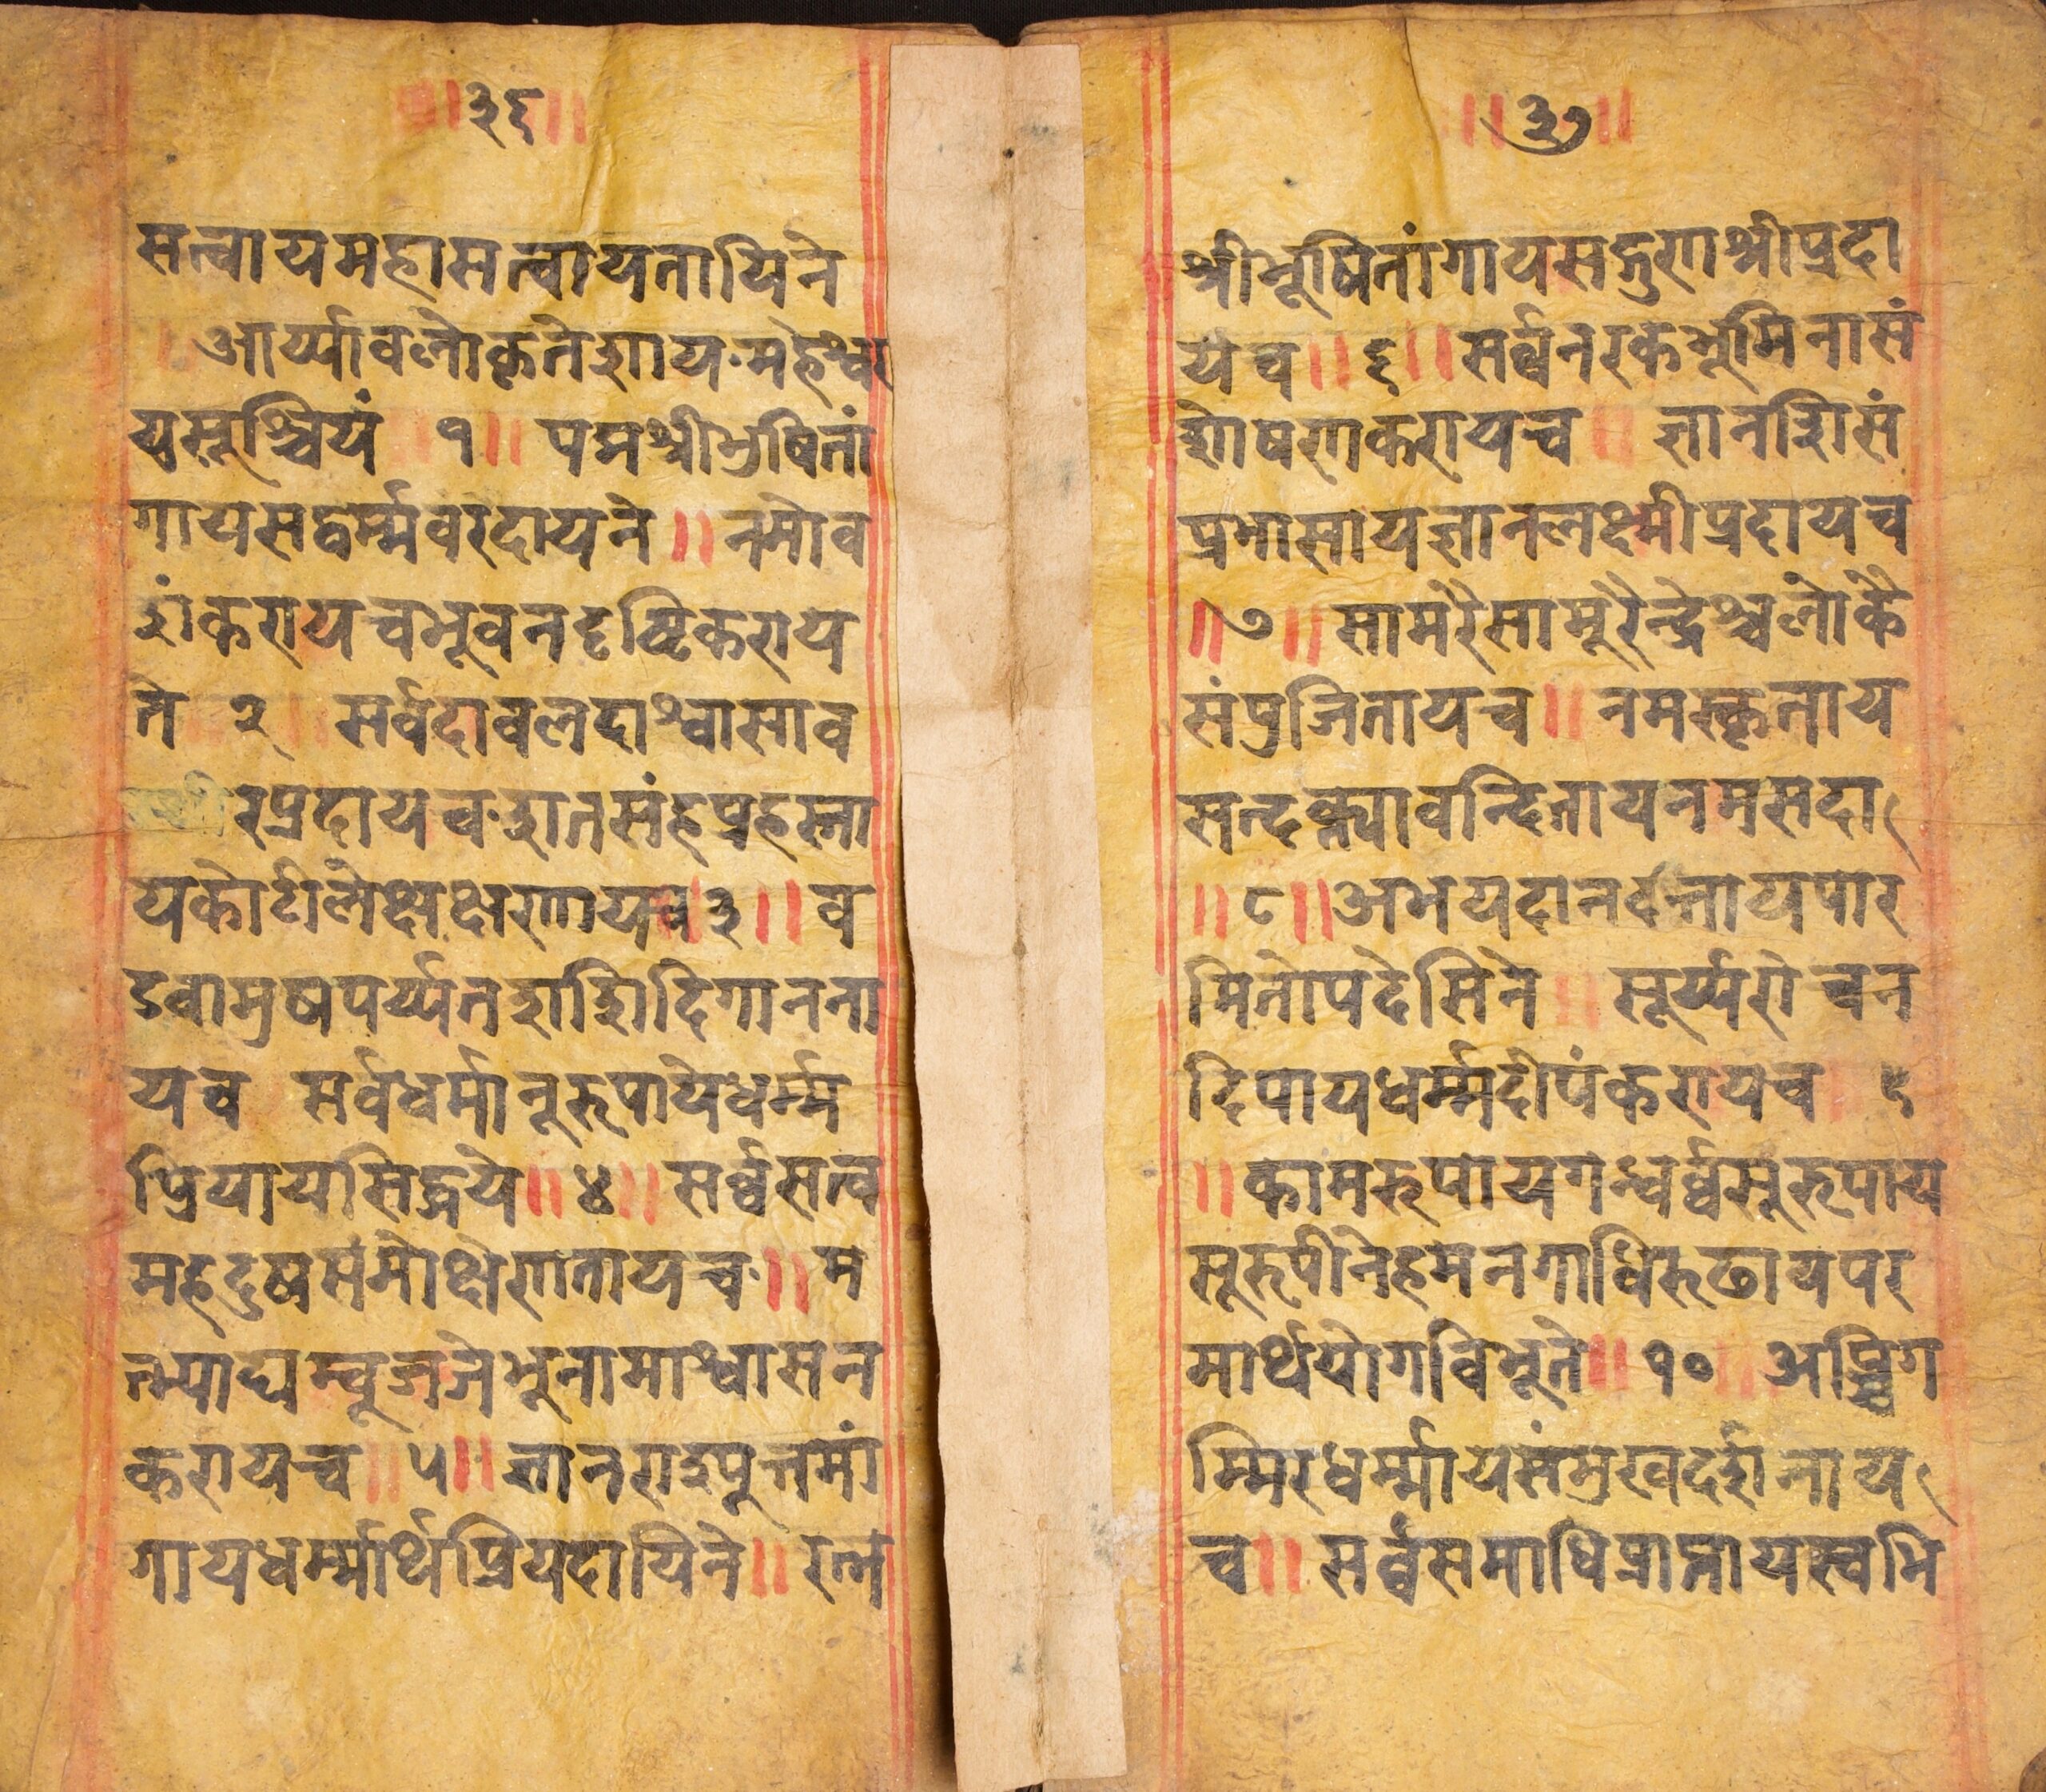 ३६
सत्वायमहासत्वायतायिने
आर्य्यावलोकृतेशाय महेश्वर
यसूश्रियं १॥ पद्मश्रीभुषितां
गायसद्धर्म्मवरदायने॥ नमोव
शंकरायचभूवनदृष्टिकराय
ते २ सर्वदावलदाश्वासाव
रप्रदायच शतसंहप्रहस्ता
यकोटीलेक्ष्यक्षरणायच ३॥ व
डवामुखपर्य्यतशशिदिगानना
यच सर्वधर्मानूरूपायेधर्म्म
प्रियायसिद्धये॥ ४॥ सर्व्वसत्व
महदुषसंमोक्षेणातायच॥ म
त्स्याद्यम्बूजजेभूनामाश्वासन
करायच॥ ५॥ ज्ञानराशपूत्तमां
गायधर्म्मार्थप्रियदायिने॥ रत्न
३७
श्रीभूषितांगायसद्गुणश्रीप्रदा
येच॥ ६॥ सर्व्वनरकभूमिनासं
शोषणकरायच॥ ज्ञानशिसं
प्रभासायज्ञानलक्ष्मीप्रदायच
॥ ७॥ सामरैसामूरैन्द्रेश्चलोकै
संपुजितायच॥ नमस्कृताय
सन्दक्त्यावन्दितायनमसदा
॥ ८॥ अभयदानदत्तायपार
मितोपदेसिने॥ सूर्य्यरोचन
दिपायधर्म्मदीपंकरायच॥ ९
॥ कामरूपायगन्धर्व्वसूरूपाय
सूरूपीनेहमनगाधिरूढायपर
मार्थयोगविभूते॥ १०॥ अब्धिग
म्मिरधर्म्मायसंमुखदर्शनाय
च॥ सर्व्वसमाधिप्राप्तायस्वभि